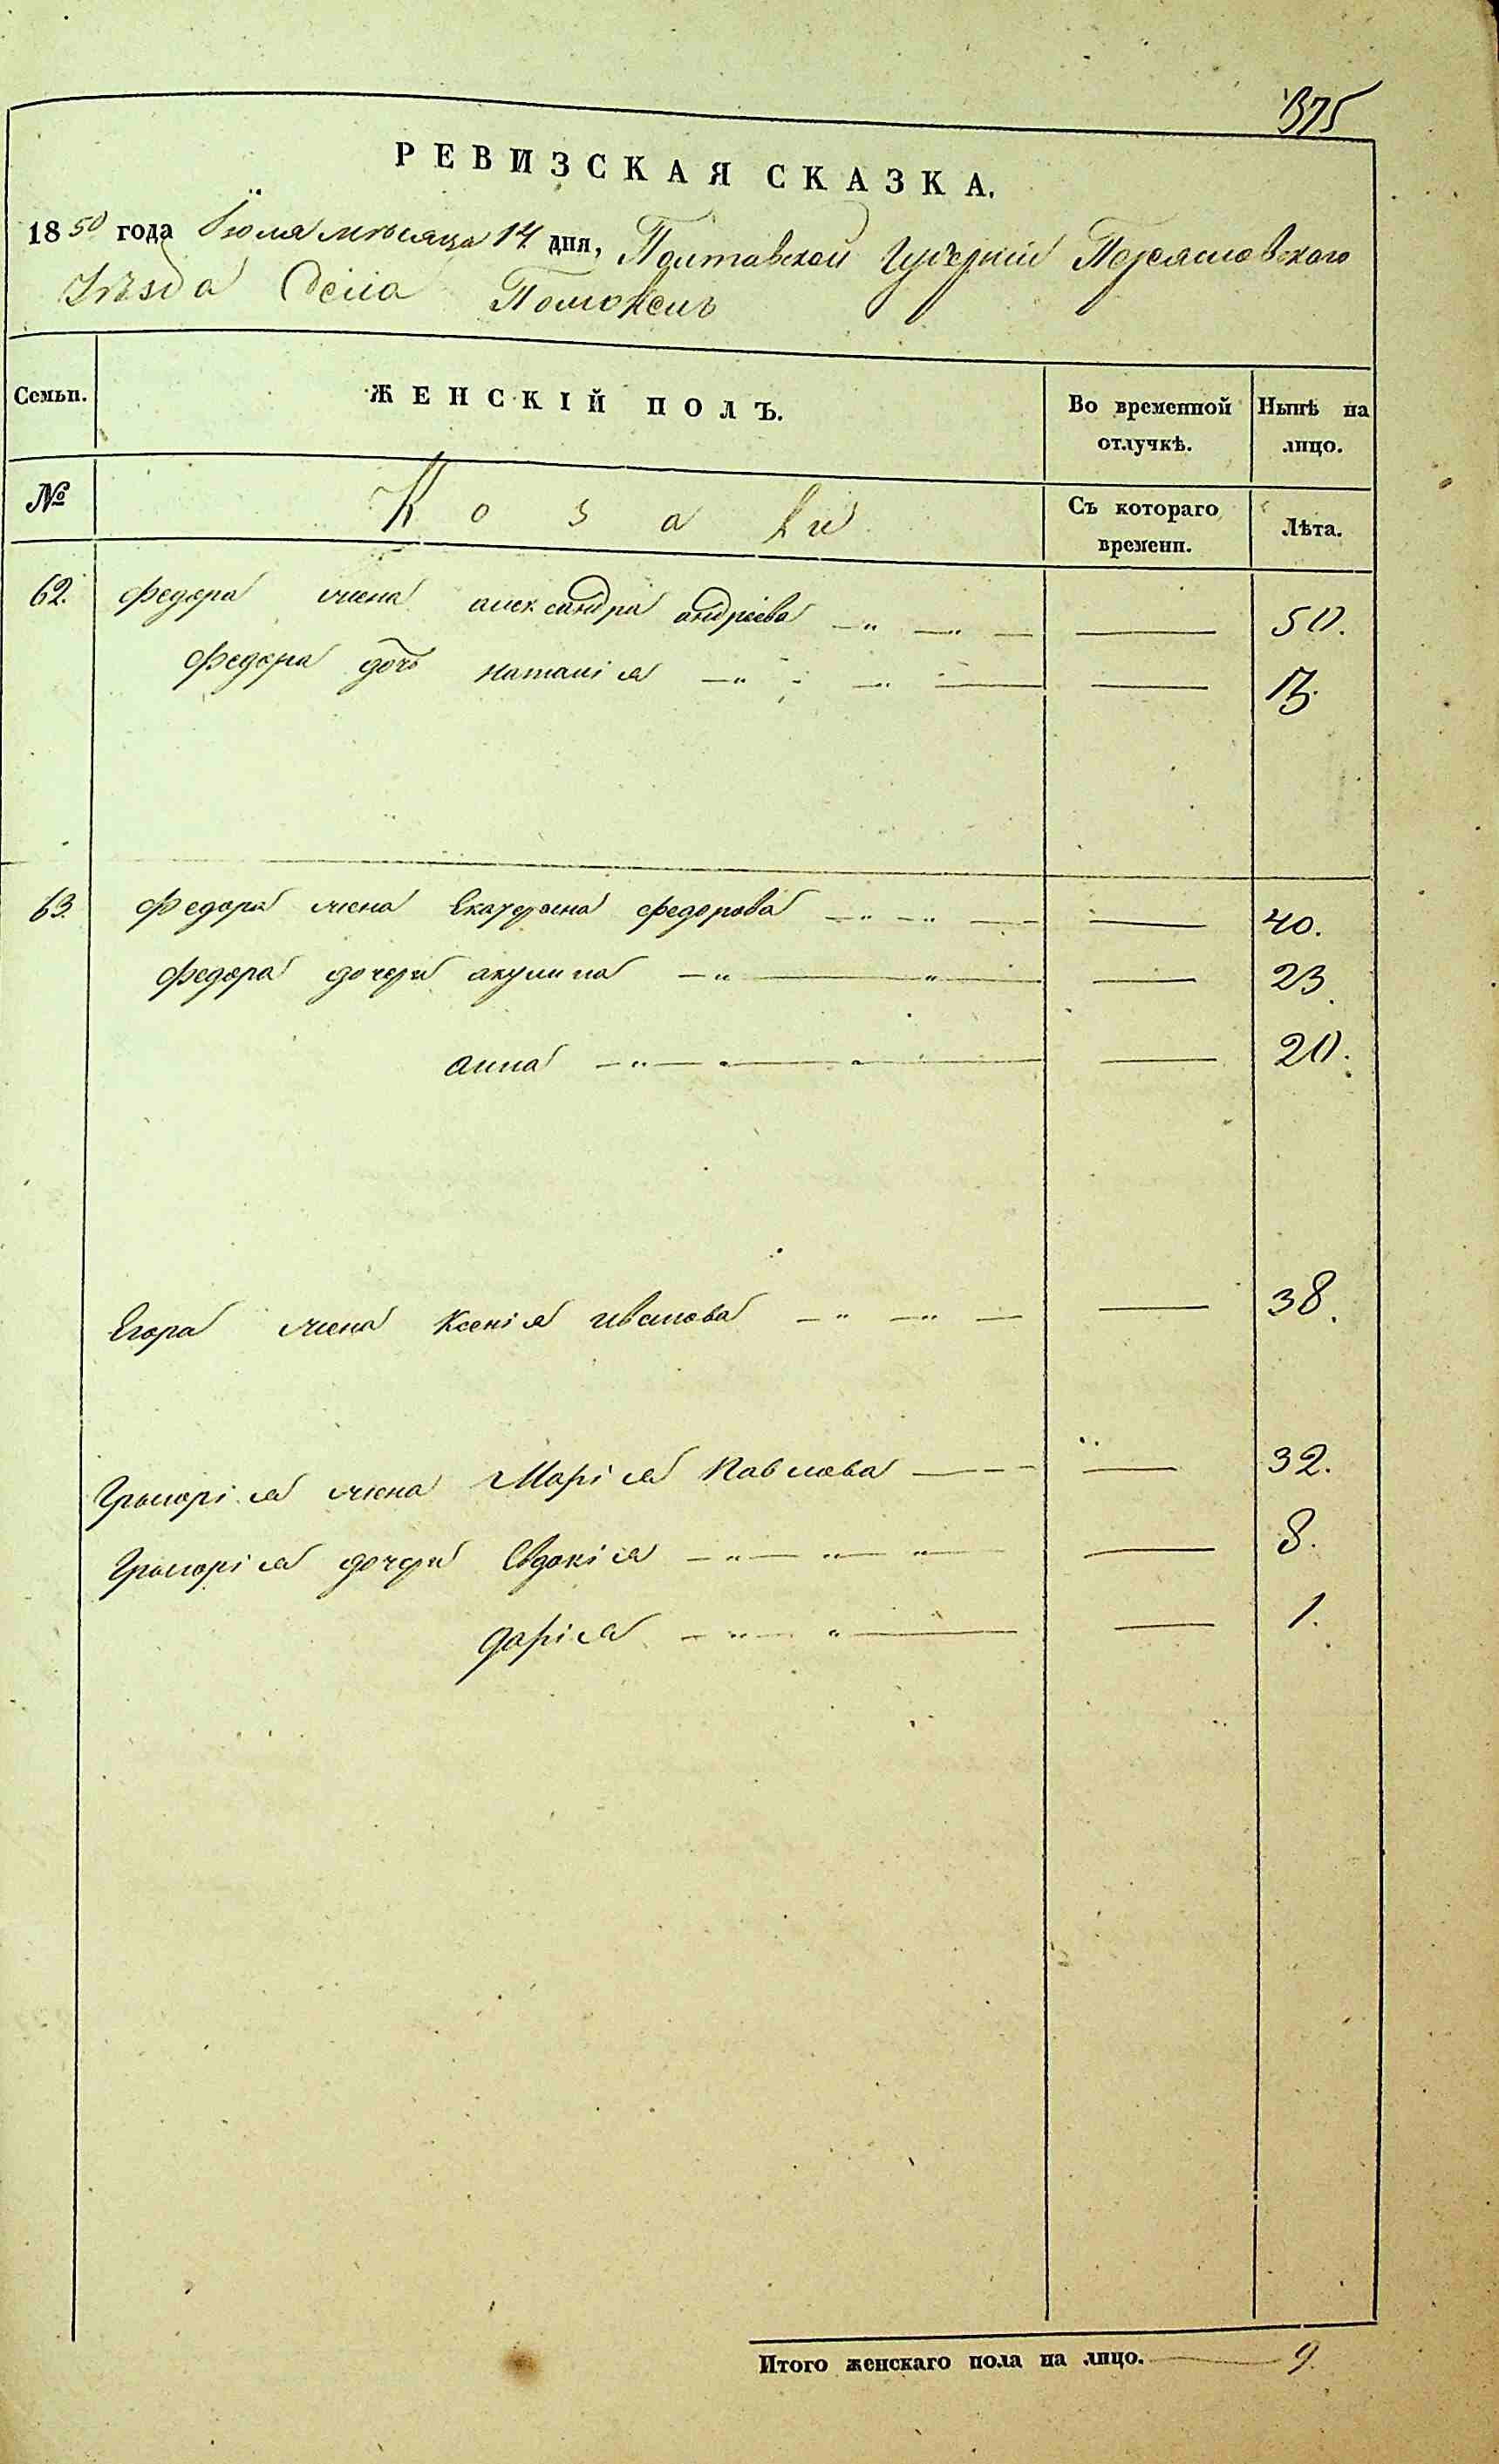 375
РЕВИЗСКАЯ СКАЗКА.
1850 года Іюля мѣсяца 14 дня, Полтавской Губерніи Переясловского
Уѣзда Села Помокель
Семьи. ЖЕНСКІЙ ПОЛЪ. Во временной отлучкѣ. Нынѣ на лицо.
№ Козаки Съ котораго времени. Лѣта.
62. Федора жена александра андреева 50.
Федора дочь наталія 13.
63. Федора жена Екатерина федорова 40.
Федора дочери акулина 23
анна 20.
Егора жена Ксенія иванова 38.
Григорія жена Марія Павлова 32.
Григорія дочери Евдокія 8.
дарія 1.
Итого женскаго пола на лицо. 9.